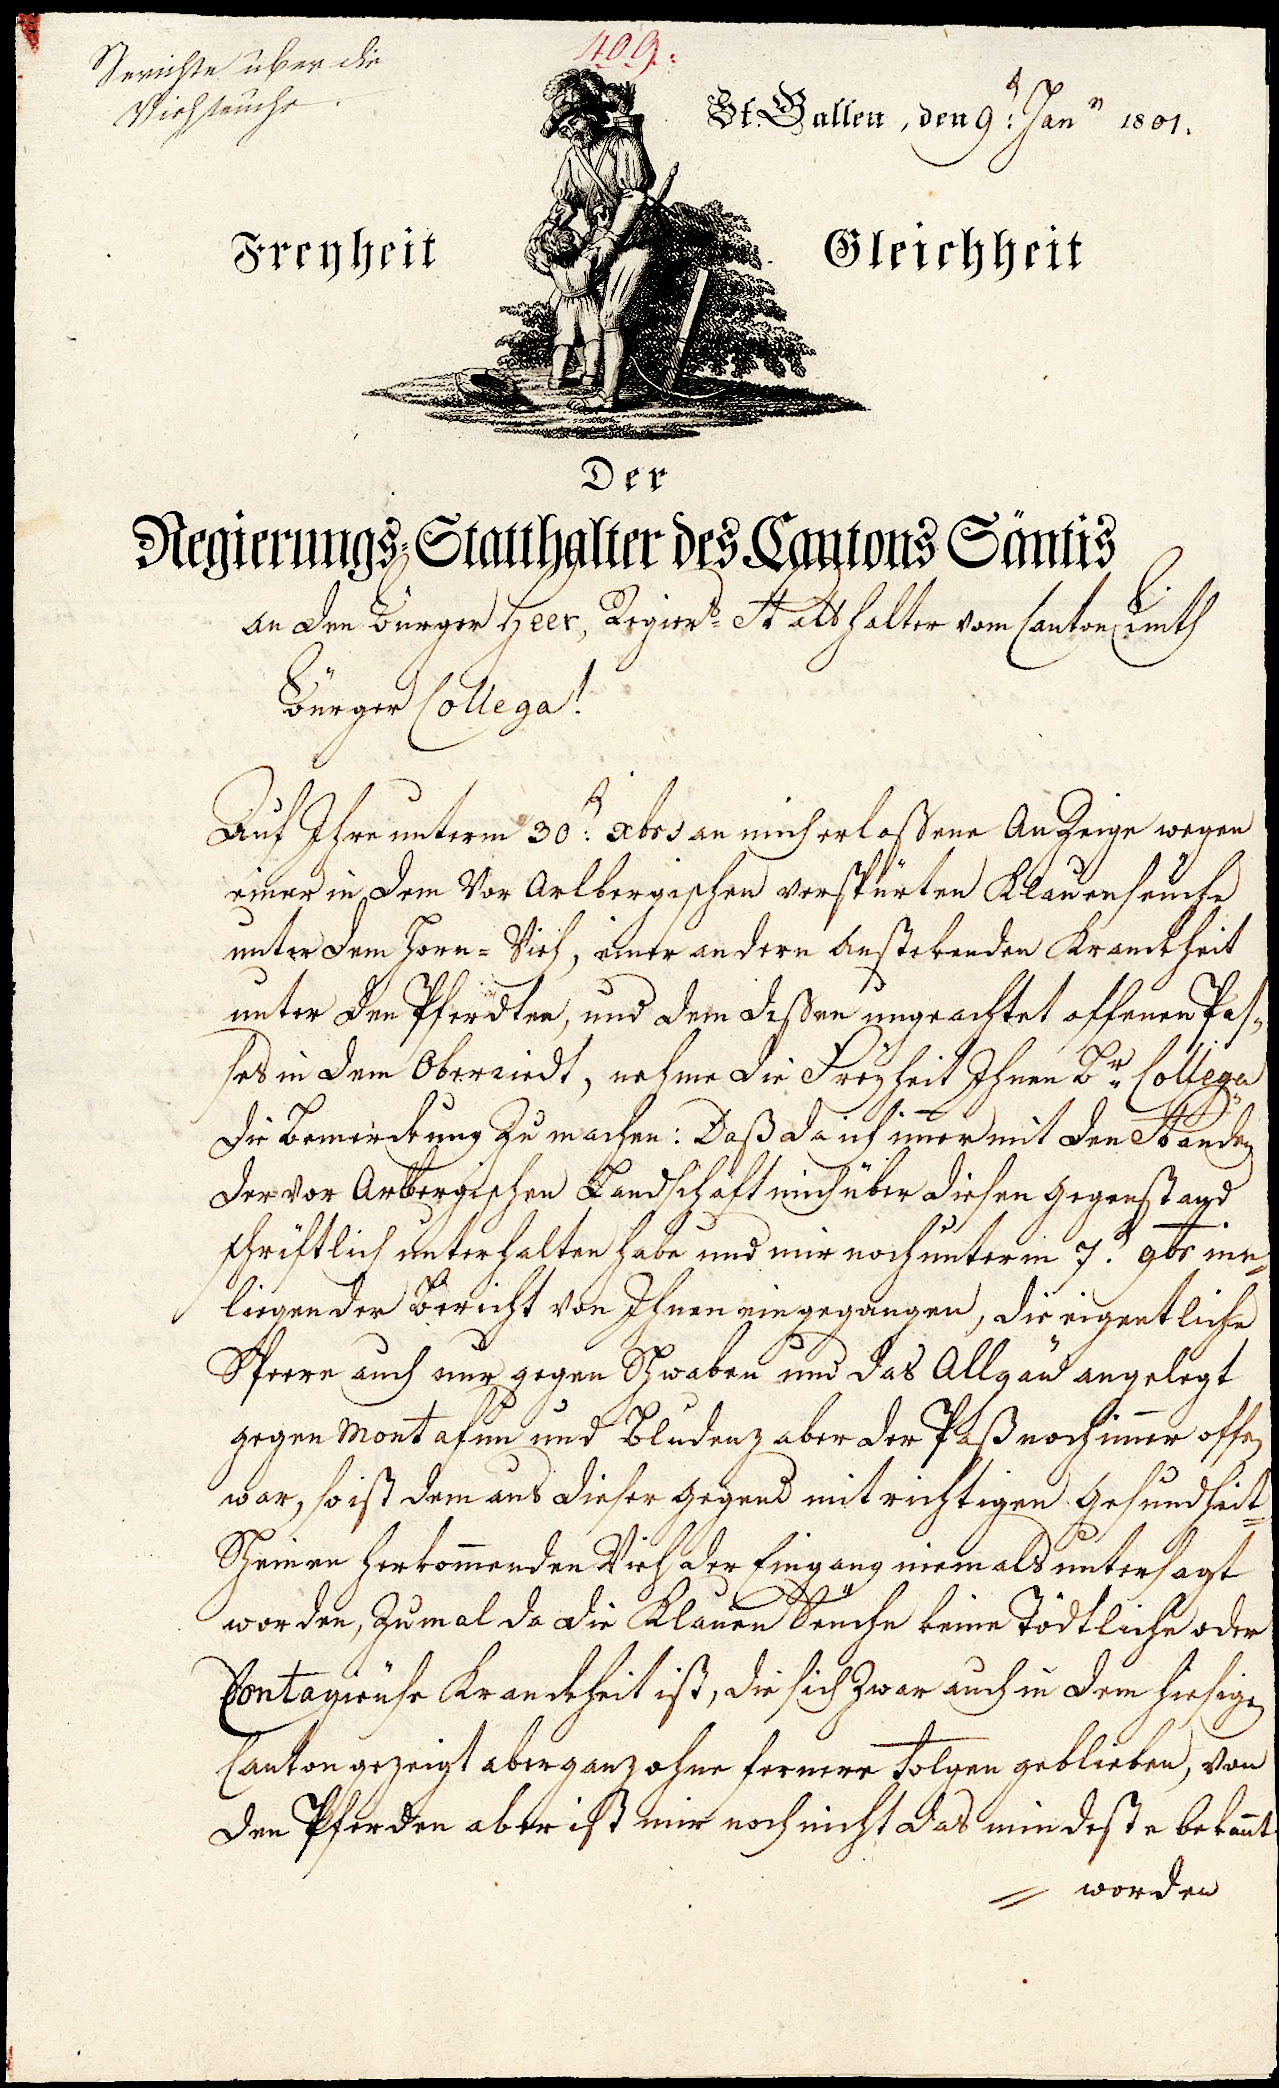 Berichte über die
Viehseuche.
409.
St. Gallen, den 9.t Jan.r 1801.
Freyheit Gleichheit
Der
Regierungs-Statthalter des Cantons Säntis
an den Bürger Heer, Regier.s Statthalter vom Canton Linth
Bürger Collega!
Auf Ihre unterm 30.t Xbris an mich erlaßene Anzeige wegen
einer in dem Vor Arlbergischen verspürten Klauenseuche
unter dem Horn-Vieh, einer andern anstekenden Kranckheit
unter den Pferdten, und dem deßen ungeachtet offenen Pas-
ses in dem Oberriedt, nehme die Freyheit Ihnen B.r Collega
die Bemerckung zu machen: Daß da ich im̄er mit den Ständen
der vor Arlbergischen Landschaft mich über diesen Gegenstand
schriftlich unterhalten habe und mir noch unterm 7.t 9br inn-
liegender Bericht von Ihnen eingegangen, die eigentliche
Sperre auch nur gegen Schwaben und das Allgäu angelegt
gegen Montafun und Bludenz aber der Paß noch im̄er offen
war, so ist dem aus dieser Gegend mit richtigen Gesundheit-
Scheinen herkom̄enden Vieh der Eingang niemals untersagt
worden, zumal da die Klauen Seuche keine Tödtliche oder
Contagieuse Kranckheit ist, die sich zwar auch in dem hiesigen
Canton gezeigt aber ganz ohne fernere Folgen geblieben, von
den Pferden aber ist mir noch nicht das mindeste bekan̄t
= worden